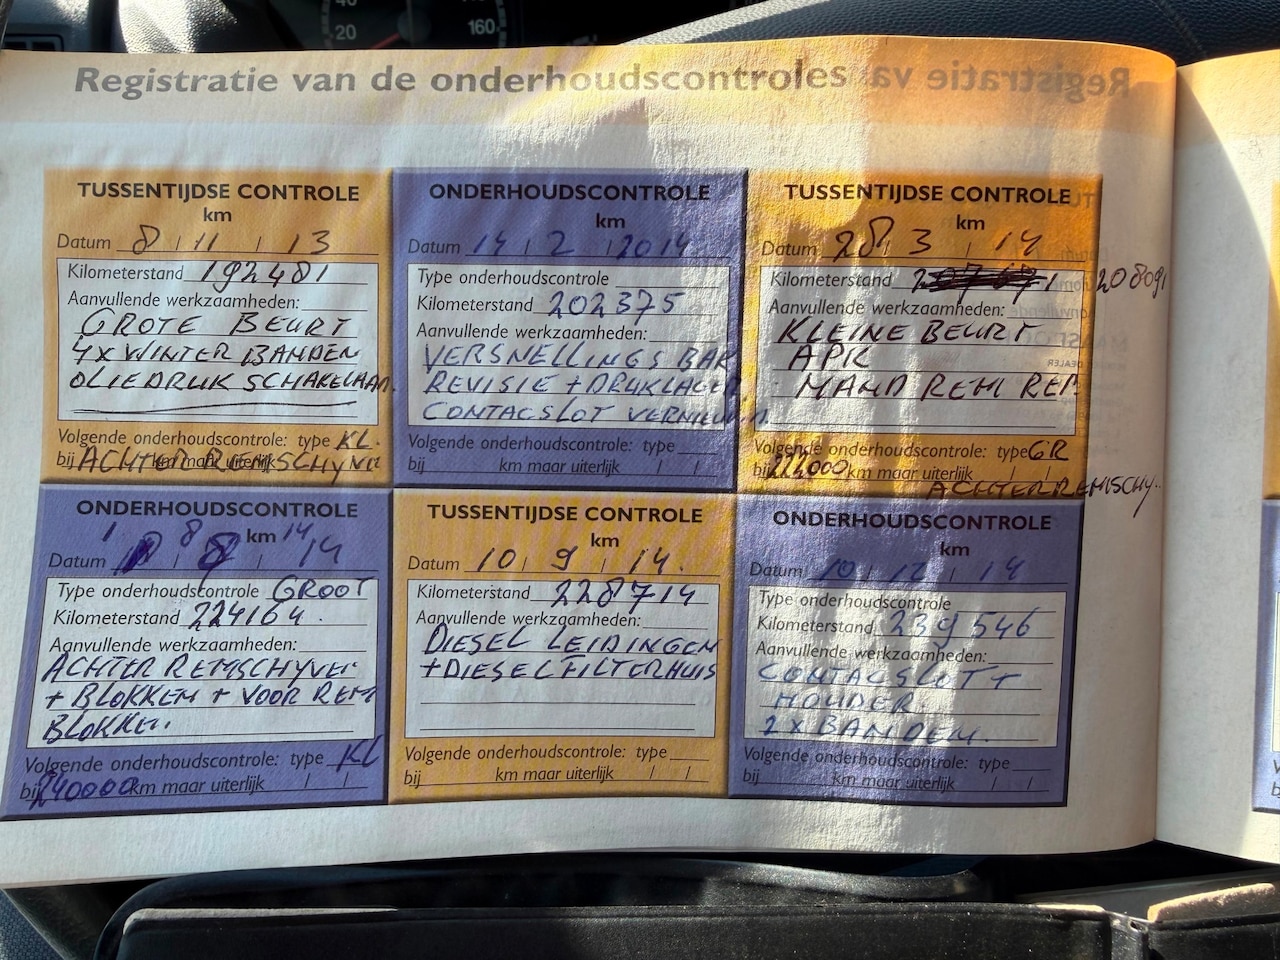 40
20
160
Registratie van de onderhoudscontroles
TUSSENTIJDSE CONTROLE
km
Datum 8 / 11 / 13
Kilometerstand 192481
Aanvullende werkzaamheden:
GROTE BEURT
4x WINTER BANDEN
OLIEDRUK SCHAKELAAR.
Volgende onderhoudscontrole: type KL.
bij km maar uiterlijk
ACHTER REMSCHYVE
ONDERHOUDSCONTROLE
km
Datum 14 / 2 / 2014
Type onderhoudscontrole
Kilometerstand 202375
Aanvullende werkzaamheden:
VERSNELLINGS BAK
REVISIE + DRUKLAGER
CONTACSLOT VERNIEUWEN.
Volgende onderhoudscontrole: type
bij km maar uiterlijk / /
TUSSENTIJDSE CONTROLE
km
Datum 28 / 3 / 14
Kilometerstand 208091
Aanvullende werkzaamheden:
KLEINE BEURT
APK
HAND REM REP.
Volgende onderhoudscontrole: type GR
bij 212000 km maar uiterlijk / /
ACHTERREMSCHY..
ONDERHOUDSCONTROLE
km
Datum 1 / 8 / 14
Type onderhoudscontrole GROOT
Kilometerstand 224164.
Aanvullende werkzaamheden:
ACHTER REMSCHYVEN
+ BLOKKEN + VOOR REM
BLOKKEN.
Volgende onderhoudscontrole: type KL
bij 240000 km maar uiterlijk / /
TUSSENTIJDSE CONTROLE
km
Datum 10 / 9 / 14.
Kilometerstand 228714
Aanvullende werkzaamheden:
DIESEL LEIDINGEN
+ DIESELFILTERHUIS
Volgende onderhoudscontrole: type
bij km maar uiterlijk / /
ONDERHOUDSCONTROLE
km
Datum 10 / 12 / 14
Type onderhoudscontrole
Kilometerstand 239546
Aanvullende werkzaamheden:
CONTACSLOT +
HOUDER.
2 x BANDEN.
Volgende onderhoudscontrole: type
bij km maar uiterlijk / /